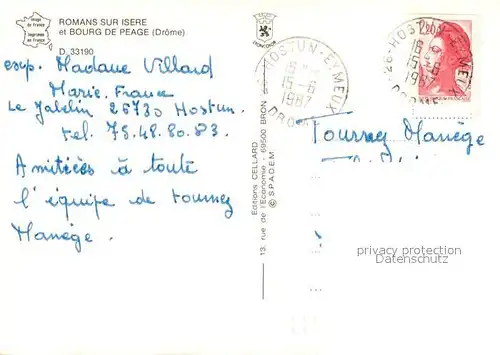 Image
de France
Imprimée
en France
ROMANS SUR ISERE
et BOURG DE PEAGE (Drôme)
D 33190
exp. Madame Villard
Marie. France
Le Jabelin 26730 Hostun.
tel. 75.48.80.83.
Amitiées à toute
l'équipe de tournez
Manège.
Editions CELLARD
69500 BRON
13, rue de l'Economie
© S.P.A.D.E.M.
26-HOSTUN-EYMEUX
15-6
1987
DROME
26-HOSTUN-EYMEUX
15-6
1987
DROME
2,20
Tournez Manège
privacy protection
Datenschutz